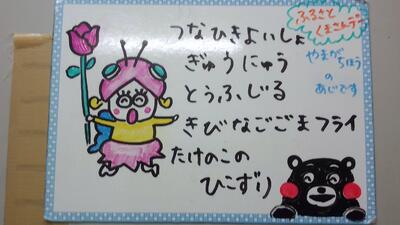 ふるさと
くまさんデー
やまが
ちほう
の
あじです
つなひきよいしょ
ぎゅうにゅう
とうふじる
きびなごごまフライ
たけのこの
ひこずり